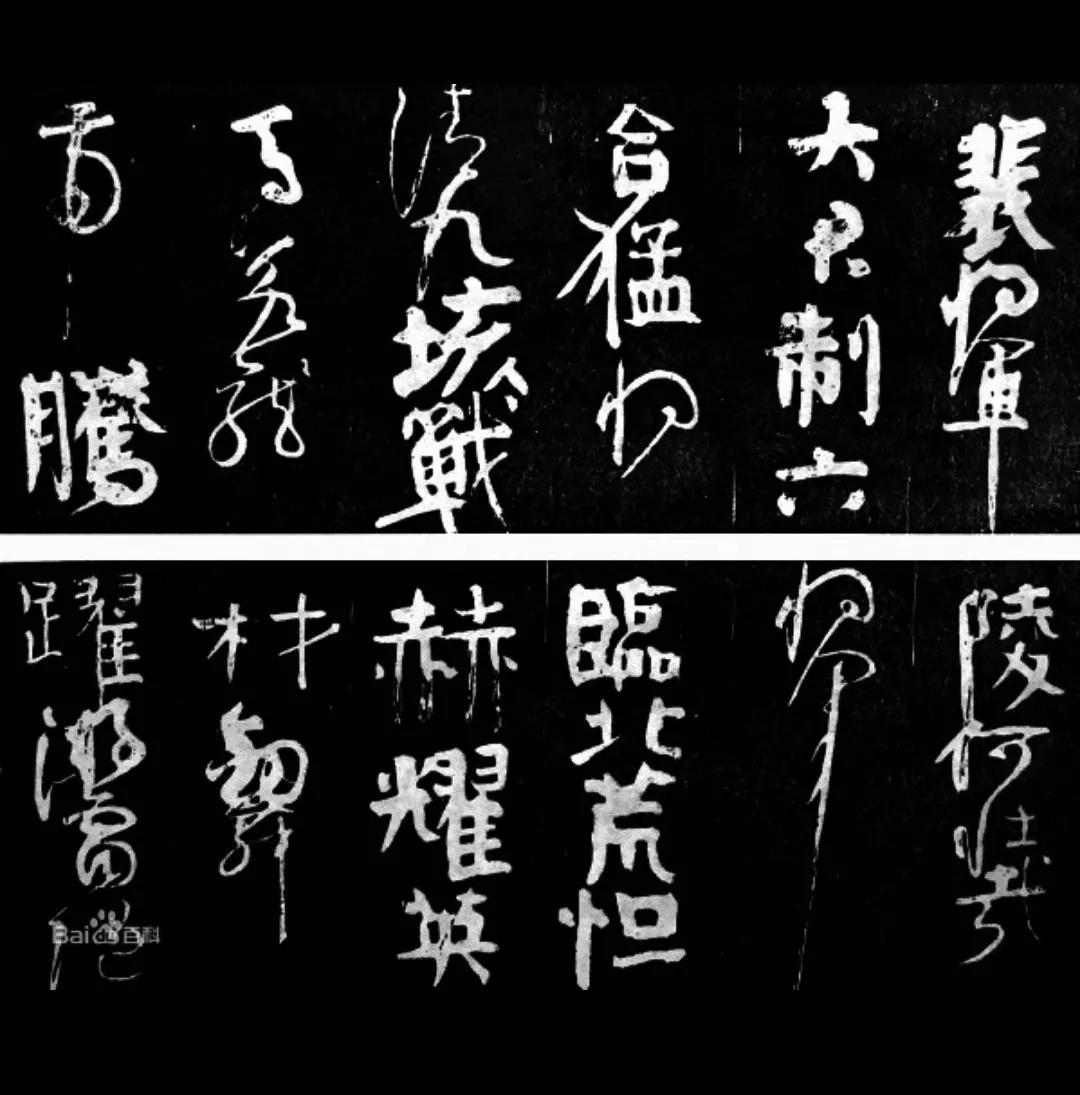 裴將軍
大君制六
合猛將
清九垓戰
馬若龍
虎騰
陵何壯哉
將軍
臨北荒怛
赫耀英
材劍舞
躍游雷隨
Bai百科